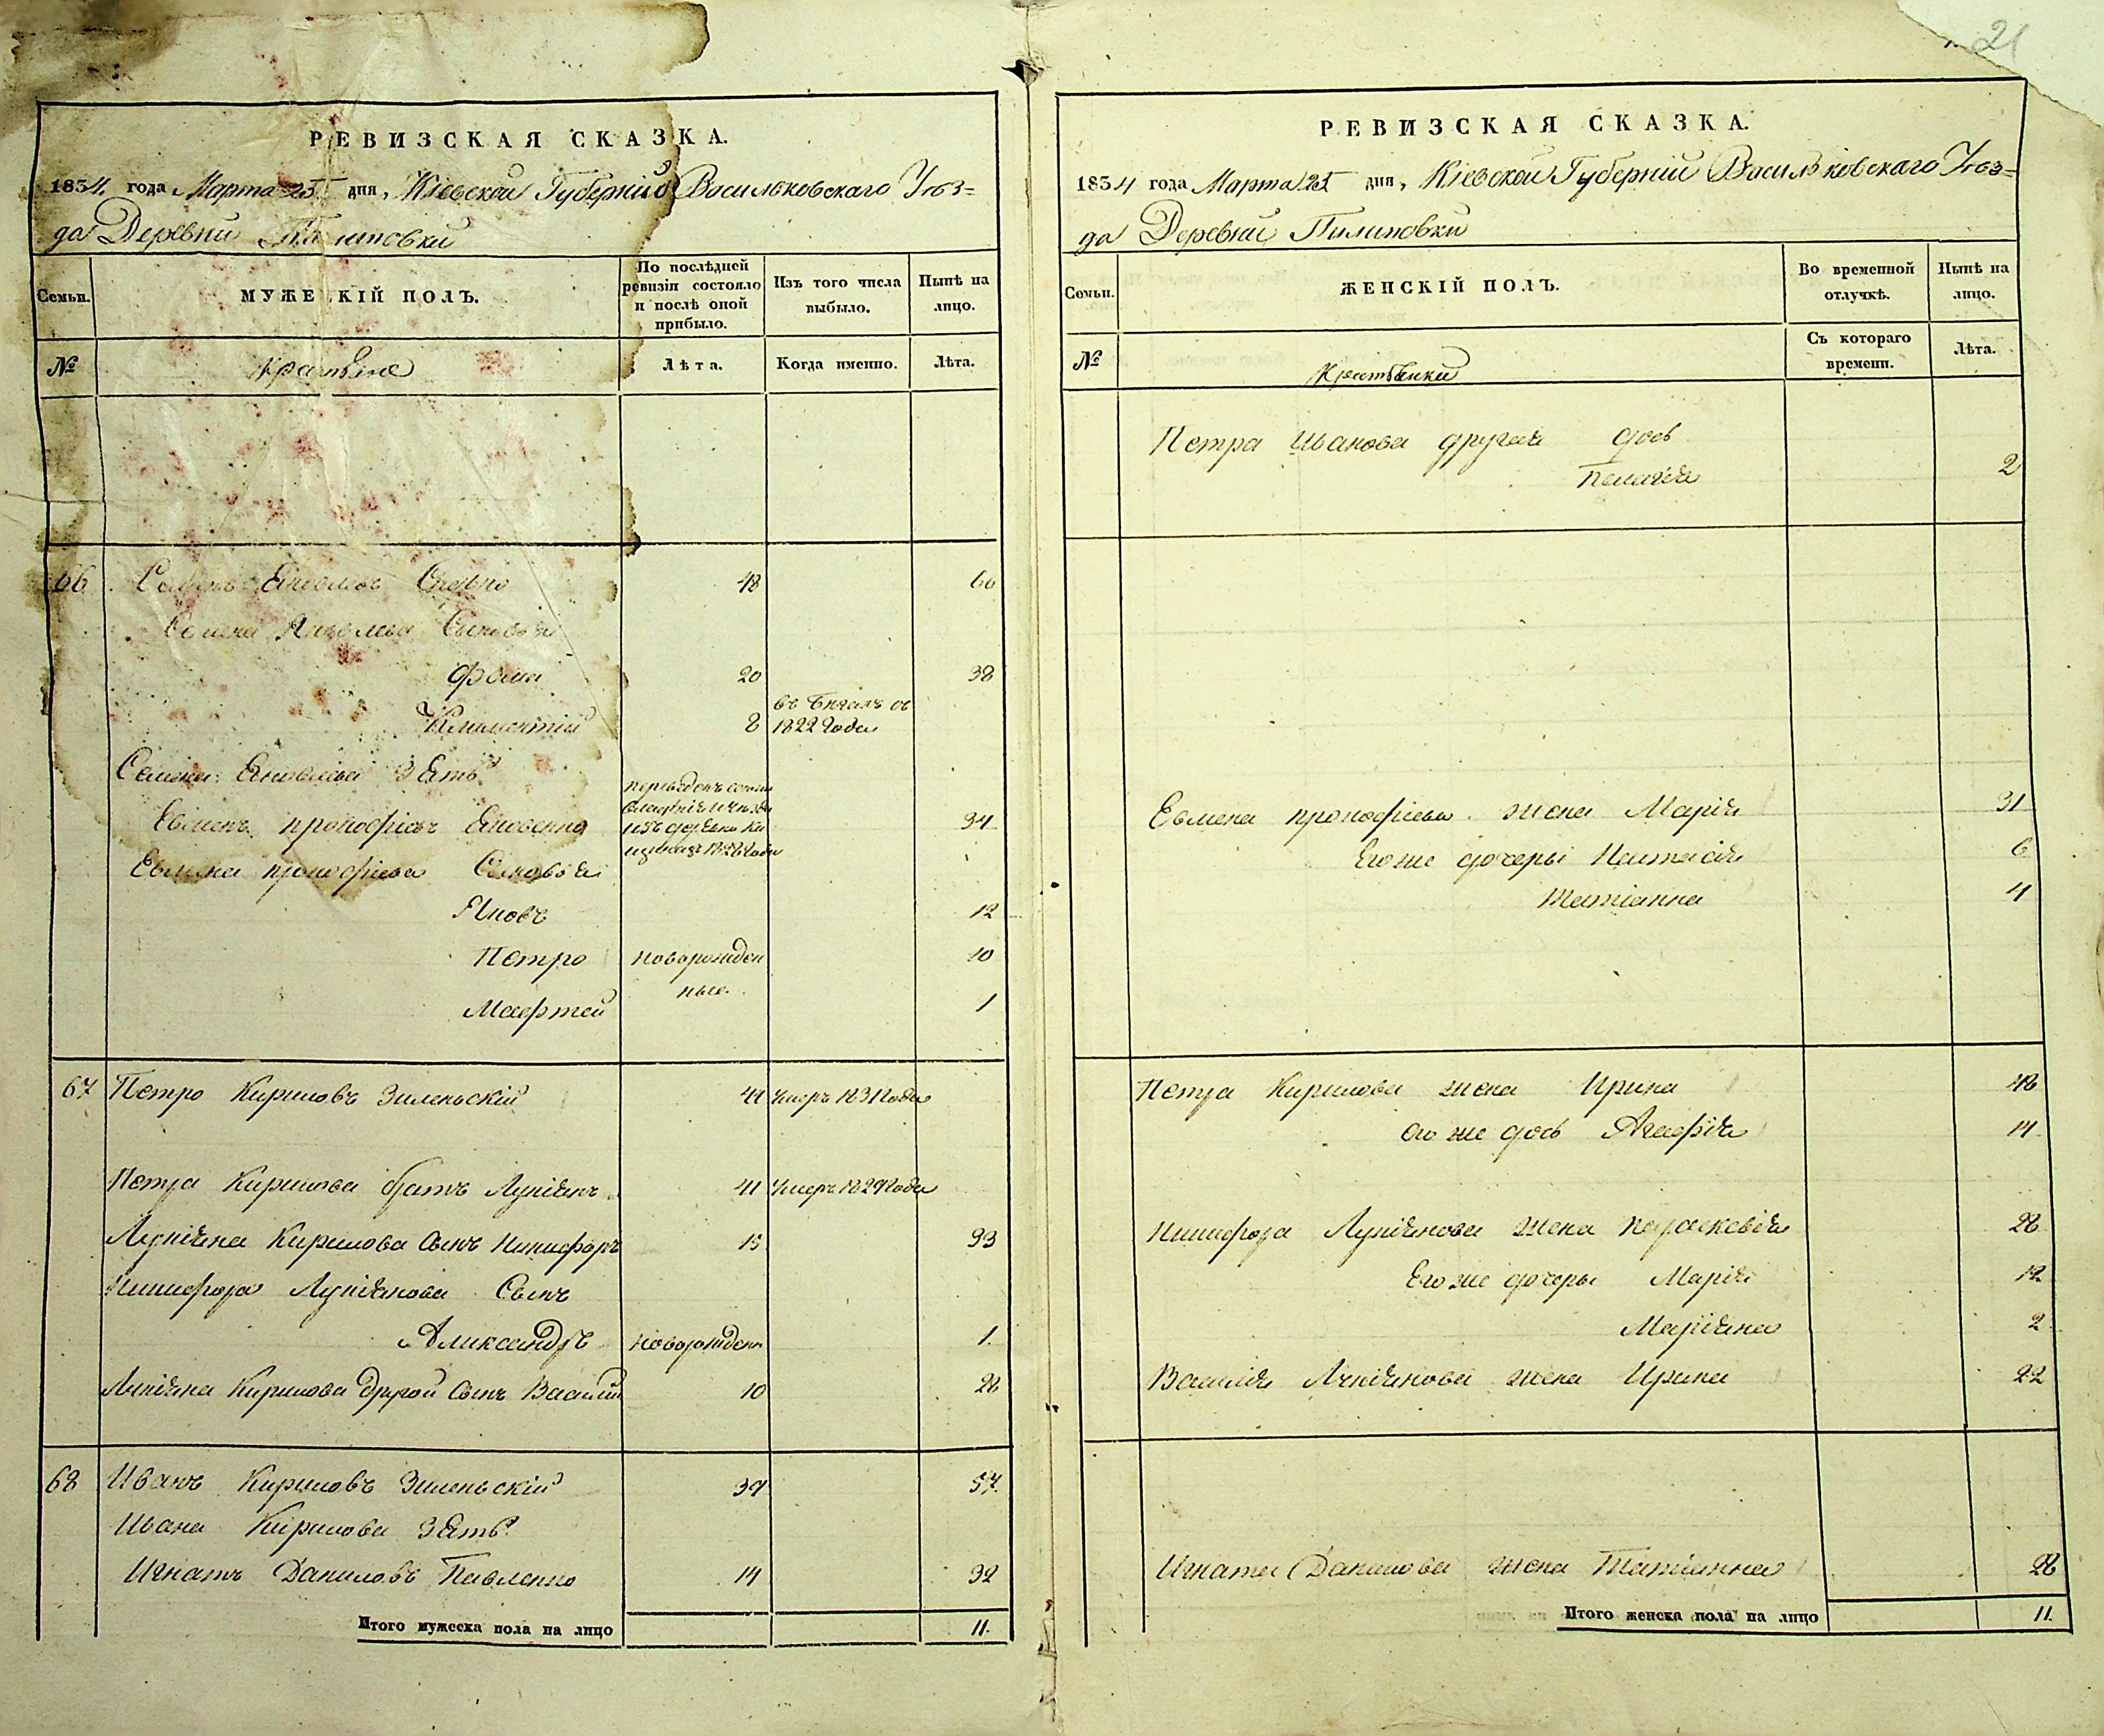 21
РЕВИЗСКАЯ СКАЗКА.
1834 года Марта 25 дня, Кіевской Губерніи Васильковскаго Уез=
да Деревни Пилиповки
Семьи.
МУЖЕСКІЙ ПОЛЪ.
По послѣдней ревизіи состояло и послѣ оной прибыло.
Изъ того числа выбыло.
Нынѣ на лицо.
№
Крестьяне
Лѣта.
Когда именно.
Лѣта.
66 Семенъ Яковлевъ 48 66
Семена Яковлева Сыновья
Фома 20 38
Климентій 8 въ бегахъ съ 1822 года
Семена Яковлева Зять
Евменъ прокофіевъ Яковенко 34
Евмена прокофіева Сыновья
Яковъ 12
Петро новорожден 10
ные
Марфтей 1
67 Петро Кириловъ Зиленьскій 44 умеръ 1831 года
Петра Кирилова братъ Лукіянъ 41 умеръ 1829 года
Лукіяна Кирилова Сынъ Никифоръ 15 33
Никифора Лукіянова Сынъ
Александръ новорожденъ 1.
Лукіяна Кирилова другой Сынъ Василій 10 28
68 Иванъ Кириловъ Зиленьскій 39 57.
Ивана Кирилова Зять
Игнатъ Даниловъ Павленко 14 32
Итого мужеска пола на лицо 11.
РЕВИЗСКАЯ СКАЗКА.
1834 года Марта 25 дня, Кіевской Губерніи Васильковскаго Уез=
да Деревни Пилиповки
Семьи.
ЖЕНСКІЙ ПОЛЪ.
Во временной отлучкѣ.
Нынѣ на лицо.
№
Крестьянки
Съ котораго времени.
Лѣта.
Петра Иванова другая дочь
Пелагія 2
Евмена прокофіева жена Марія 31
Его же дочеры Настасія 6
Татіанна 4
Петра Кирилова жена Ирина 48
его же дочь Агафія 14
Никифора Лукіянова жена параскевія 28
Его же дочеры Марія 12
Маріяна 2
Василія Лукіянова жена Ирина 22
Игната Данилова жена Татіанна 28
Итого женска пола на лицо 11.